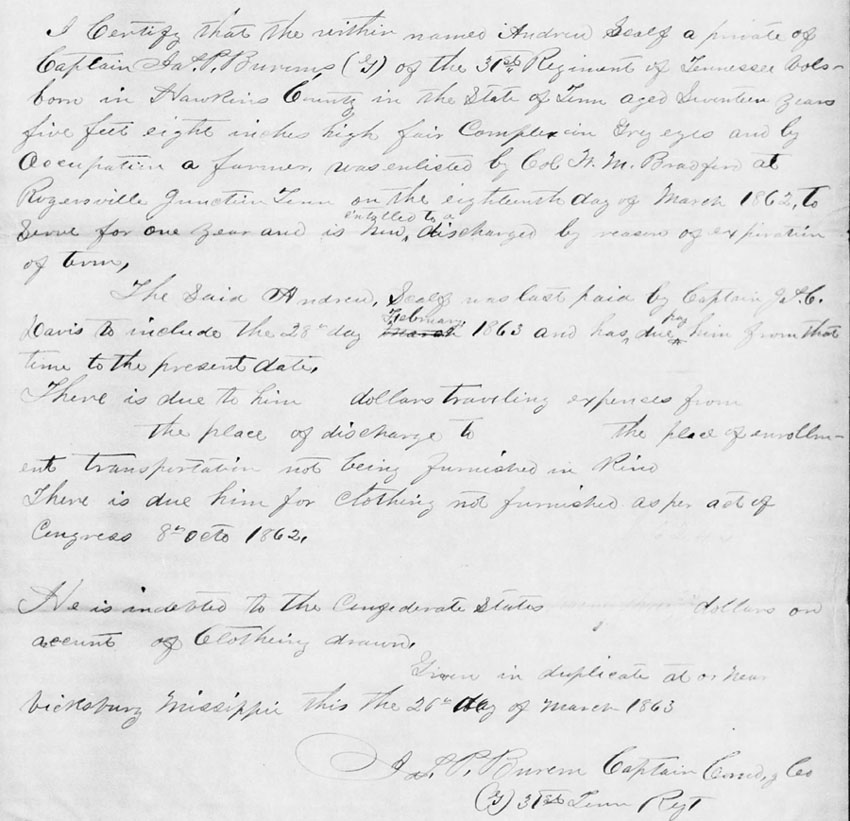 I Certify that the within named Andrew Scalf a private of
Captain Jas. P. Burems (G) of the 31st Regiment of Tennessee Vols-
born in Hawkins County in the State of Tenn aged Seventeen years
five feet eight inches high fair Complexion Grey eyes and by
Occupation a farmer, was enlisted by Col W. M. Bradford at
Rogersville Junction Tenn on the eighteenth day of March 1862, to
Serve for one year and is now, entitled to a discharged by reason of expiration
of term,
The Said Andrew, Scalf was last paid by Captain
Davis to include the 28th day March February 1863 and has due pay him from that
time to the present date,
There is due to him dollars traveling expenses from
the place of discharge to the place of enrollm-
ent transportation not being furnished in Kind
There is due him for clothing not furnished as per act of
Congress 8th Octo 1862,
He is indebted to the Confederate States dollars on
account of Clothing drawn,
Given in duplicate at or near
Vicksburg Missippie this the 26th day of March 1863
J. S. P. Burem Captain Comd,g Co
(G) 31st Tenn Regt